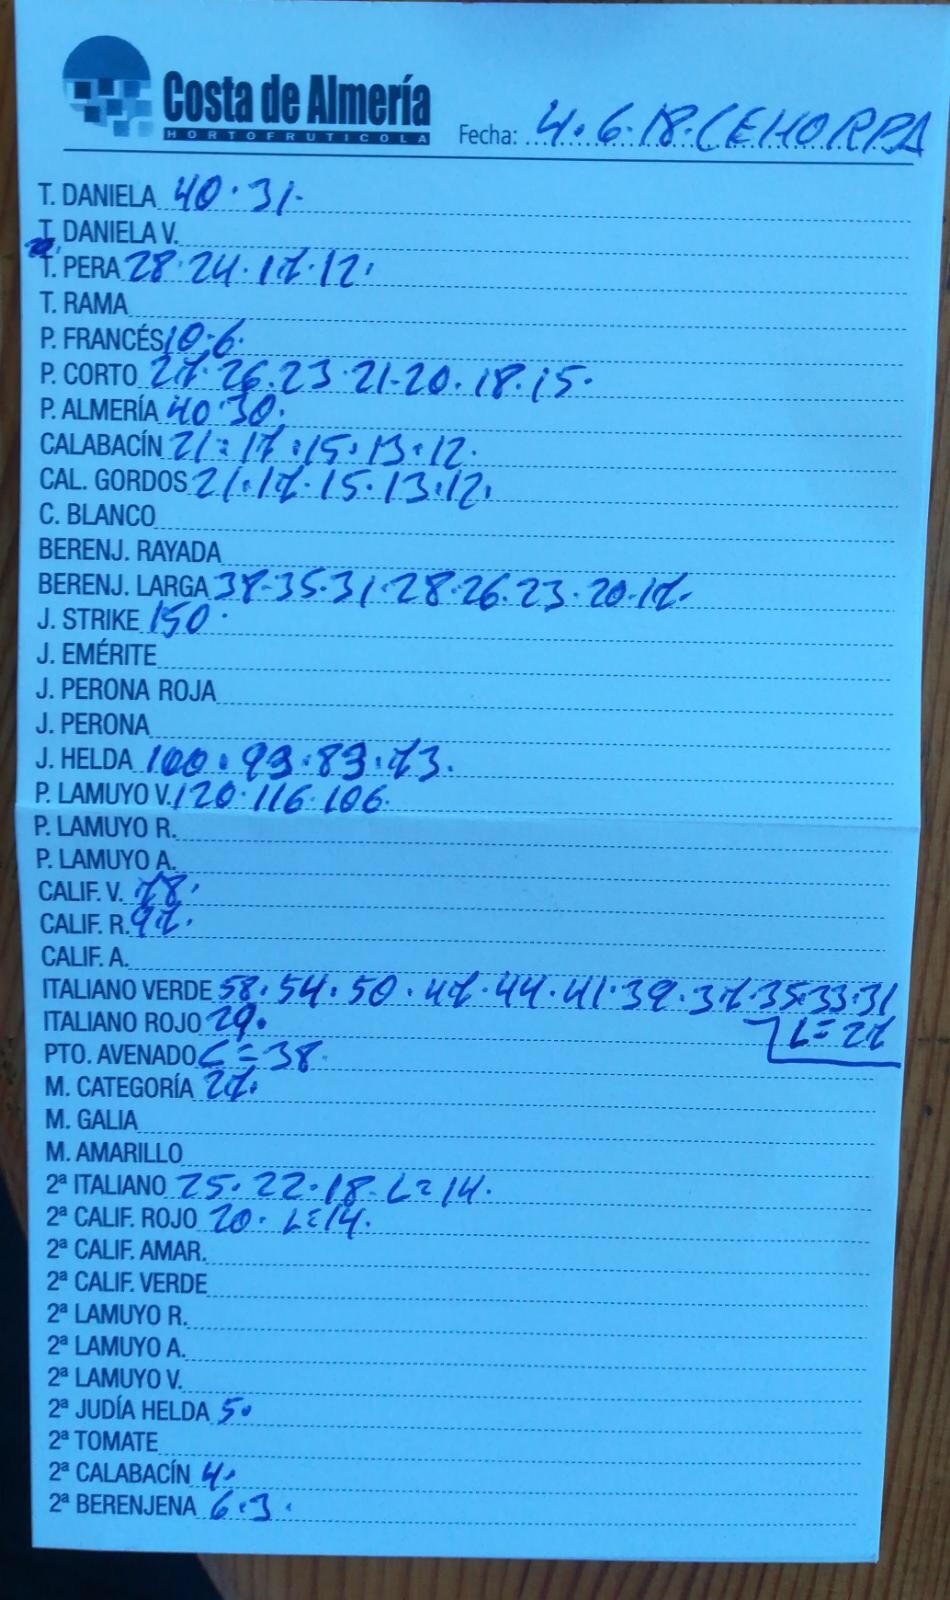 Costa de Almería
HORTOFRUTICOLA
Fecha: 4.6.18. CEHORPA
T. DANIELA 40.31.
T. DANIELA V.
T. PERA 28.24.17.12.
T. RAMA
P. FRANCÉS 10.6.
P. CORTO 27.26.23.21-20.18.15.
P. ALMERÍA 40.30.
CALABACÍN 21.17.15.13.12.
CAL. GORDOS 21.17.15.13.12.
C. BLANCO
BERENJ. RAYADA
BERENJ. LARGA 38.35.31.28.26.23.20.17.
J. STRIKE 150.
J. EMÉRITE
J. PERONA ROJA
J. PERONA
J. HELDA 100.93.83.73.
P. LAMUYO V. 120.116.106.
P. LAMUYO R.
P. LAMUYO A.
CALIF. V. 78.
CALIF. R. 97.
CALIF. A.
ITALIANO VERDE 58.54.50.47.44.41.39.37.35.33.31
ITALIANO ROJO 29. L=27
PTO. AVENADO C=38.
M. CATEGORÍA 27.
M. GALIA
M. AMARILLO
2ª ITALIANO 25.22.18.L=14.
2ª CALIF. ROJO 20. L=14.
2ª CALIF. AMAR.
2ª CALIF. VERDE
2ª LAMUYO R.
2ª LAMUYO A.
2ª LAMUYO V.
2ª JUDÍA HELDA 5.
2ª TOMATE
2ª CALABACÍN 4.
2ª BERENJENA 6.3.